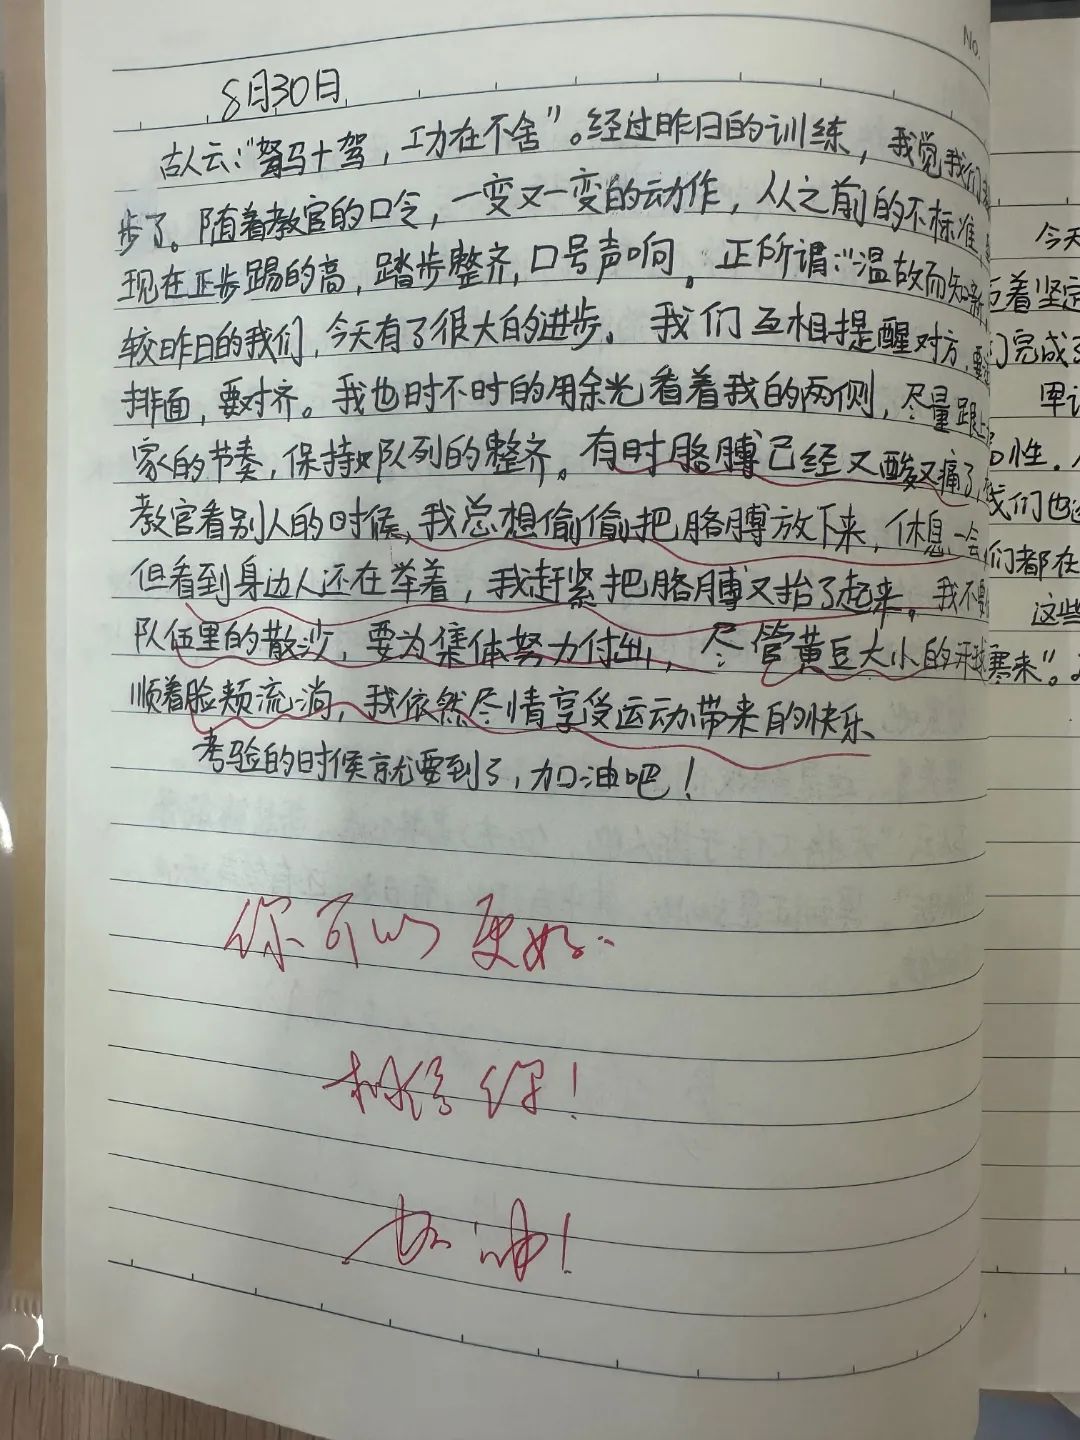 No.
8月30日
古人云:“驽马十驾，功在不舍”。经过昨日的训练，我觉我们
步了。随着教官的口令，一变又一变的动作，从之前的不标准
现在正步踢的高，踏步整齐，口号声响。正所谓:“温故而知新
较昨日的我们，今天有了很大的进步。我们互相提醒对方，要
排面，要对齐。我也时不时的用余光看着我的两侧，尽量跟上
家的节奏，保持队列的整齐。有时胳膊已经又酸又痛了，
教官看别人的时候，我总想偷偷把胳膊放下来，休息一会
但看到身边人还在举着，我赶紧把胳膊又抬了起来。我不要
队伍里的散沙，要为集体努力付出，尽管黄豆大小的汗珠
顺着脸颊流淌，我依然尽情享受运动带来的快乐
考验的时候就要到了，加油吧！
你可以更好..
相信你！
加油！
今天
着坚定
们完成了
性.
我们也
们都在
这些
寒来”。